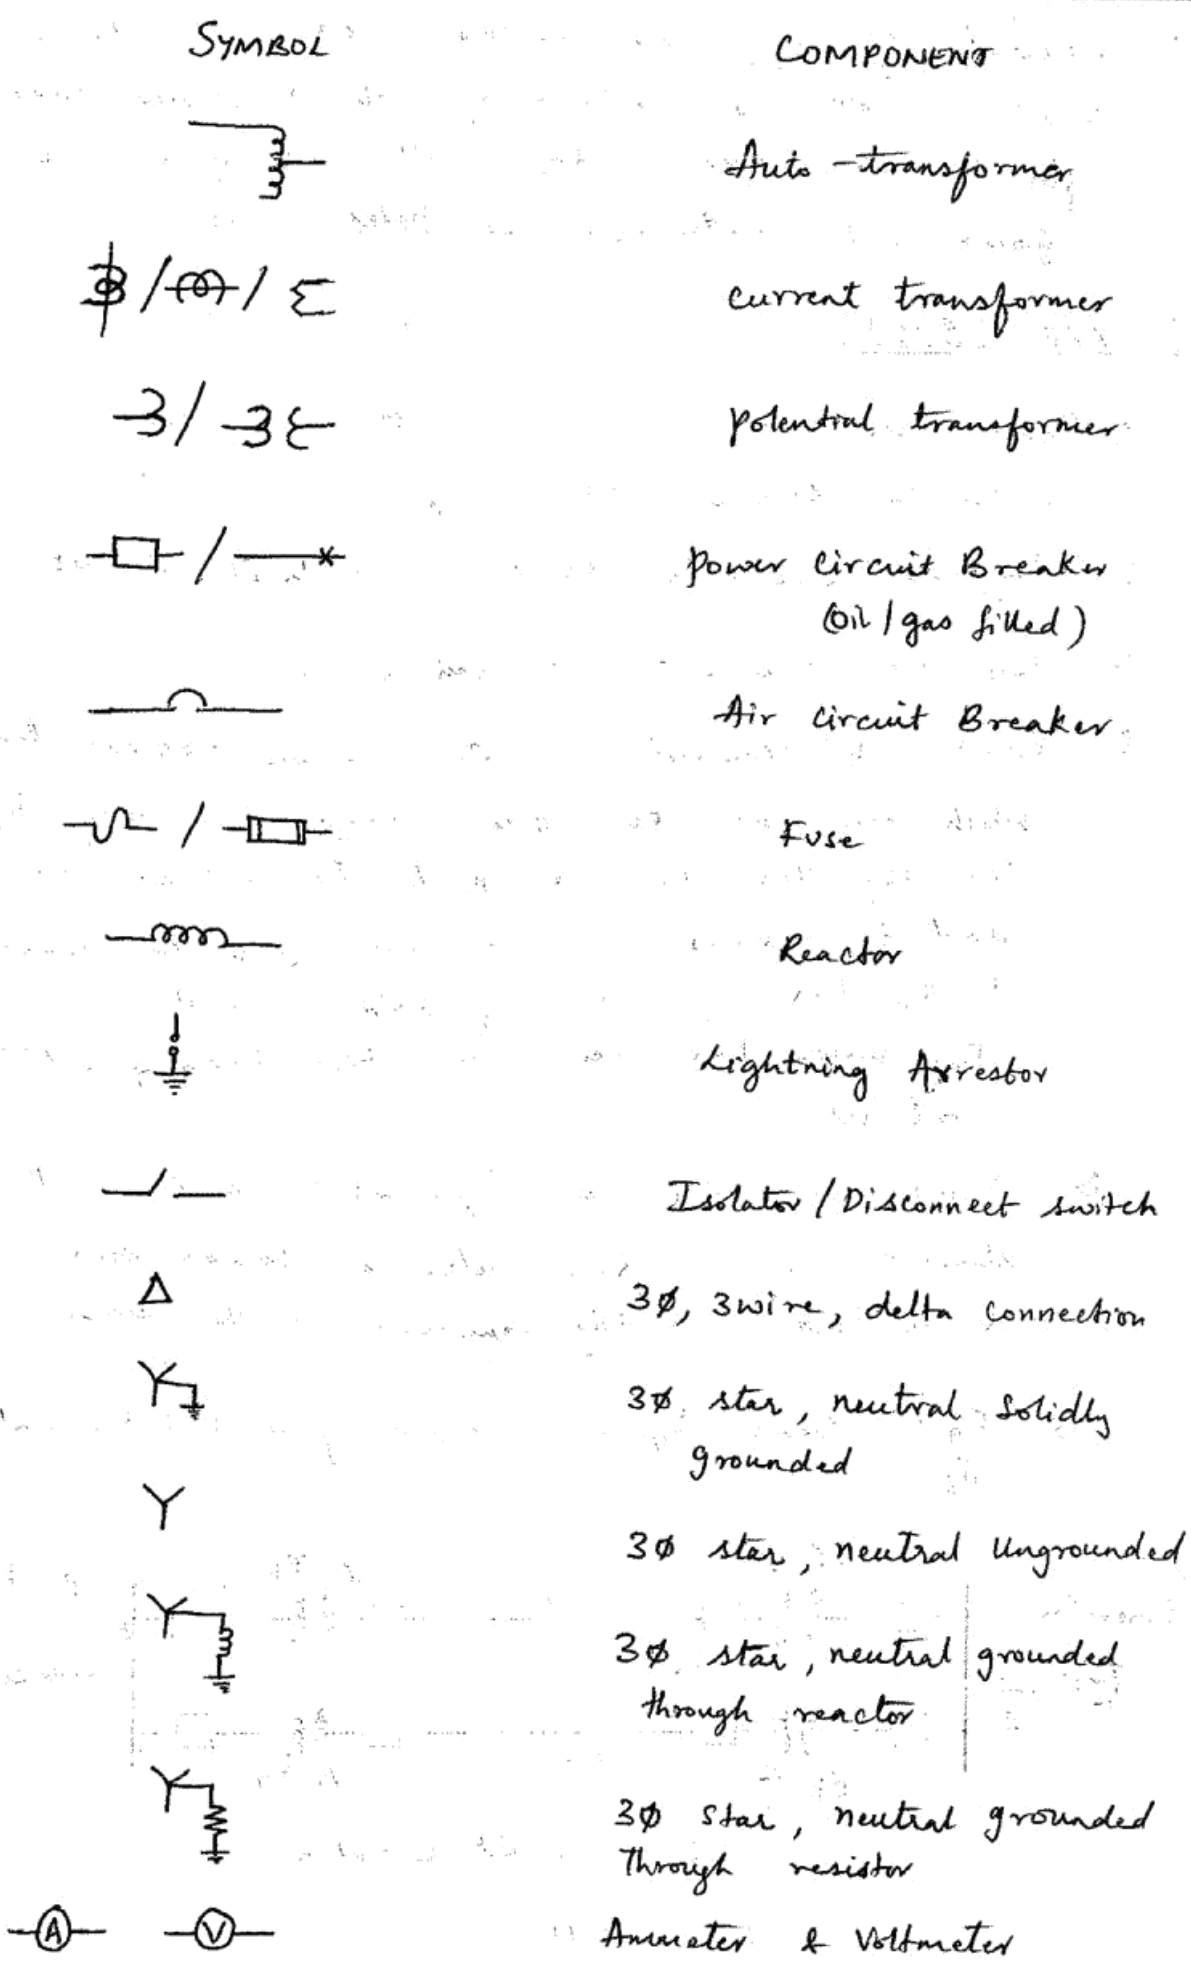 SYMBOL COMPONENT
Auto-transformer
/ / current transformer
/ potential transformer
/ power circuit Breaker
(oil/gas filled)
Air circuit Breaker
/ Fuse
Reactor
Lightning Arrestor
Isolator/Disconnect switch
3Ø, 3wire, delta connection
3Ø star, neutral solidly
grounded
3Ø star, neutral Ungrounded
3Ø star, neutral grounded
through reactor
3Ø star, neutral grounded
Through resistor
A V Ammeter & Voltmeter